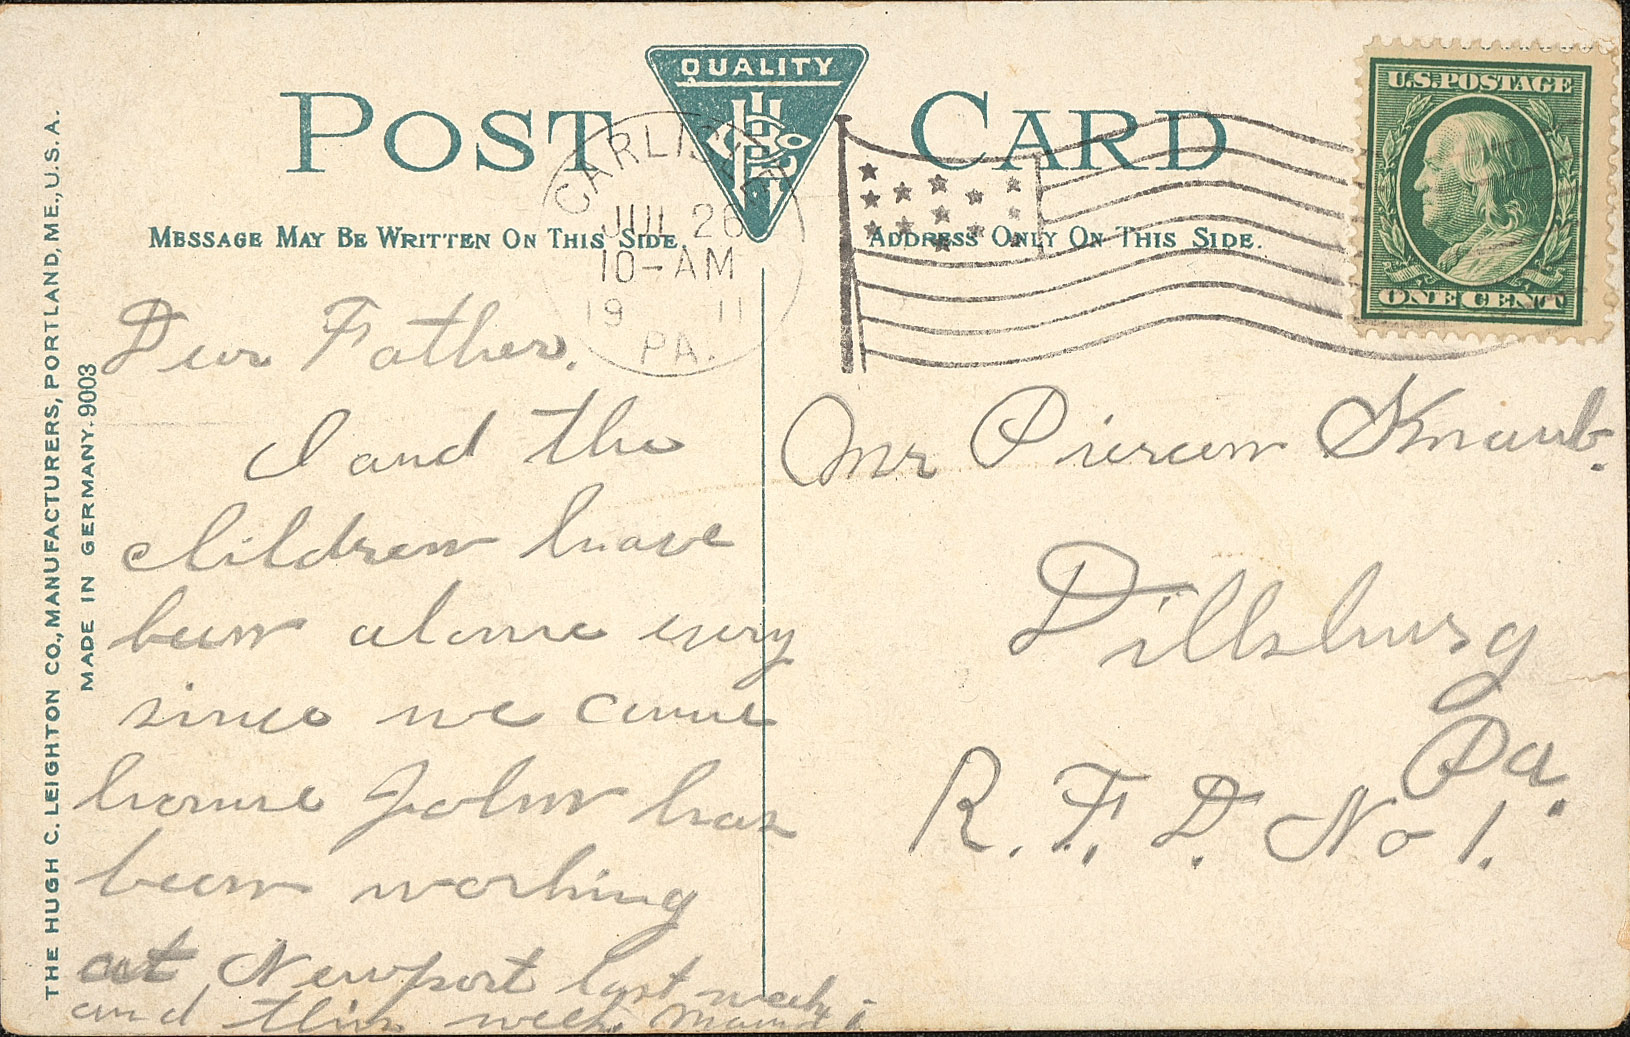 POST CARD
QUALITY
CARLISLE
JUL 26
10-AM
19 11
PA.
U.S. POSTAGE
ONE CENT
MESSAGE MAY BE WRITTEN ON THIS SIDE.
ADDRESS ONLY ON THIS SIDE.
THE HUGH C. LEIGHTON CO., MANUFACTURERS, PORTLAND, ME., U.S.A.
MADE IN GERMANY. 9003
Dear Father.
I and the
children have
been alone every
since we came
home John has
been working
at Newport last week
and this week
Mr Knaub.
Dillsburg
Pa.
R. F. D. No 1.